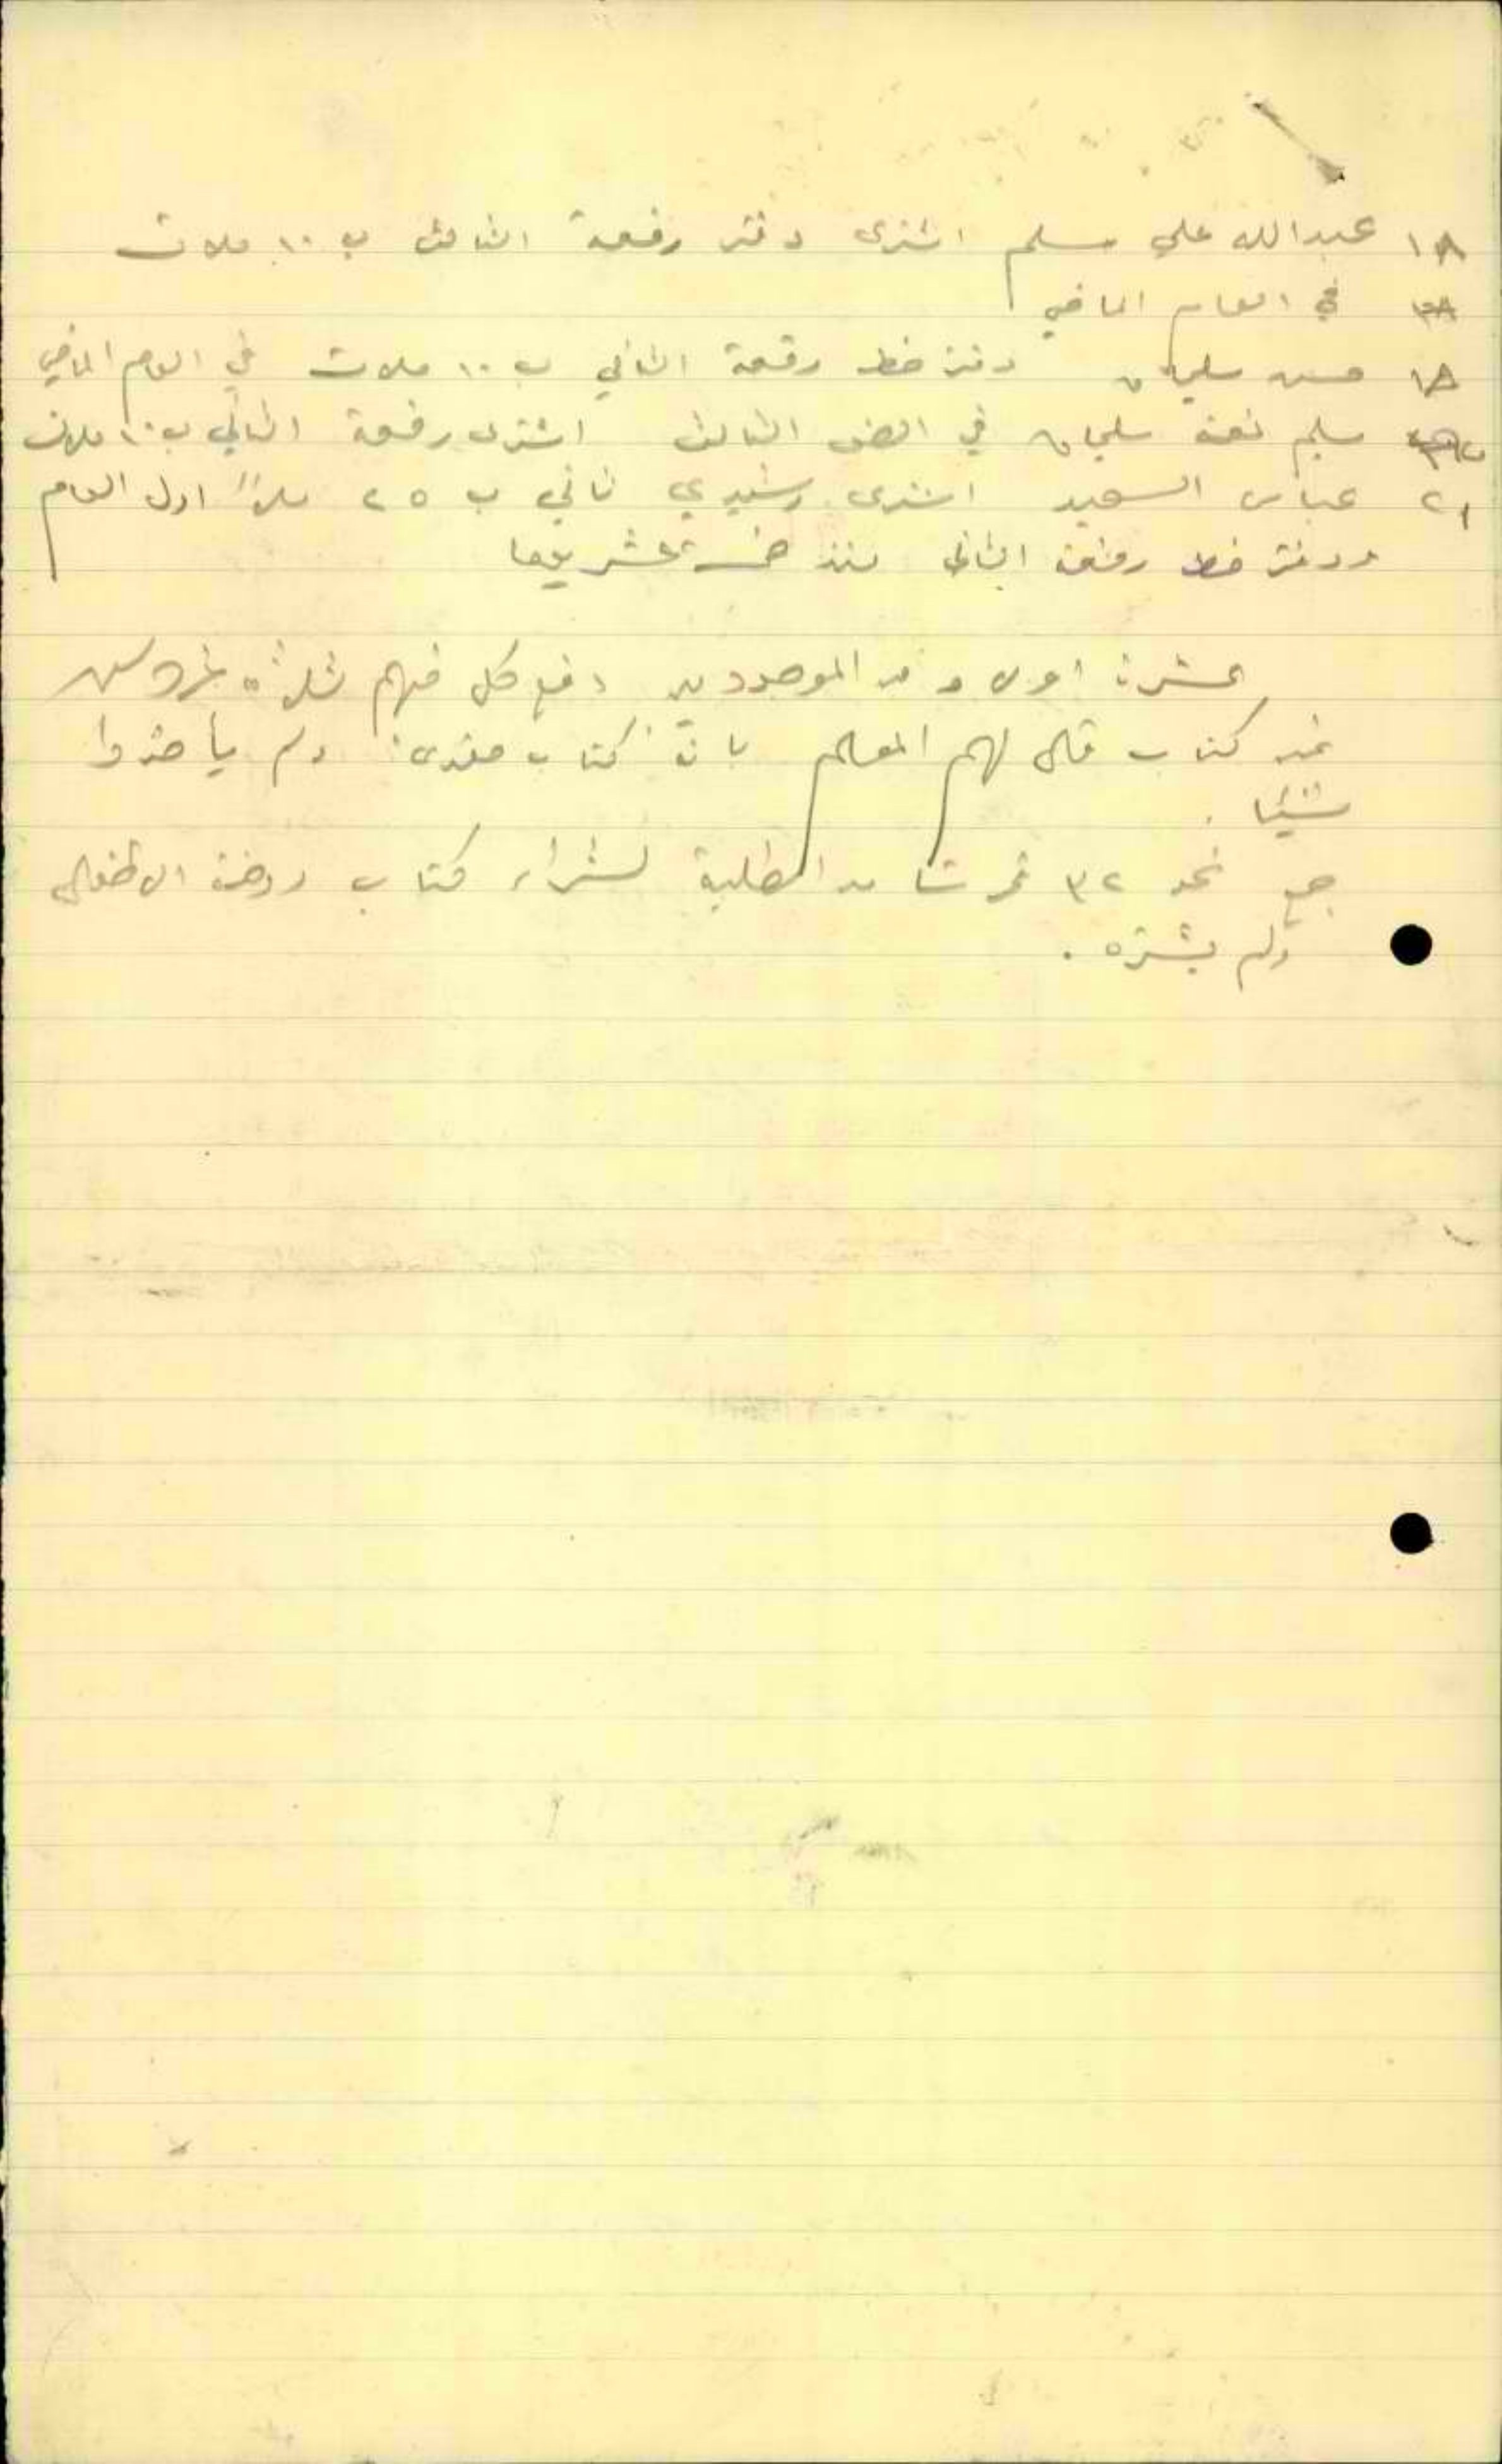 ١٨ عبدالله علي مسلم اشترى دفتر رقعة الثالث ب ١٠ ملات
في العام الماضي
١٨ حسن سليمان دفتر خط رقعة الثاني ب ١٠ ملات في العام الماضي
سليم نعمه سليمان في الصف الثالث اشترى رقعة الثاني ب ١٠ ملات
٢١ عباس السعيد اشترى رشيدي ثاني ب ٢٥ ملاً اول العام
ودفتر خط رقعة الثاني منذ خمسة عشر يوما
عشرة اولاد من الموجودين دفع كل منهم ثلاثة غروش
ثمن كتاب قال لهم المعلم بانه كتاب ولم يأخذوا
شيئا .
جمع نحو ٣٢ غرشا من الطلبة لشراء كتاب روضة الاطفال
ولم يشتره .